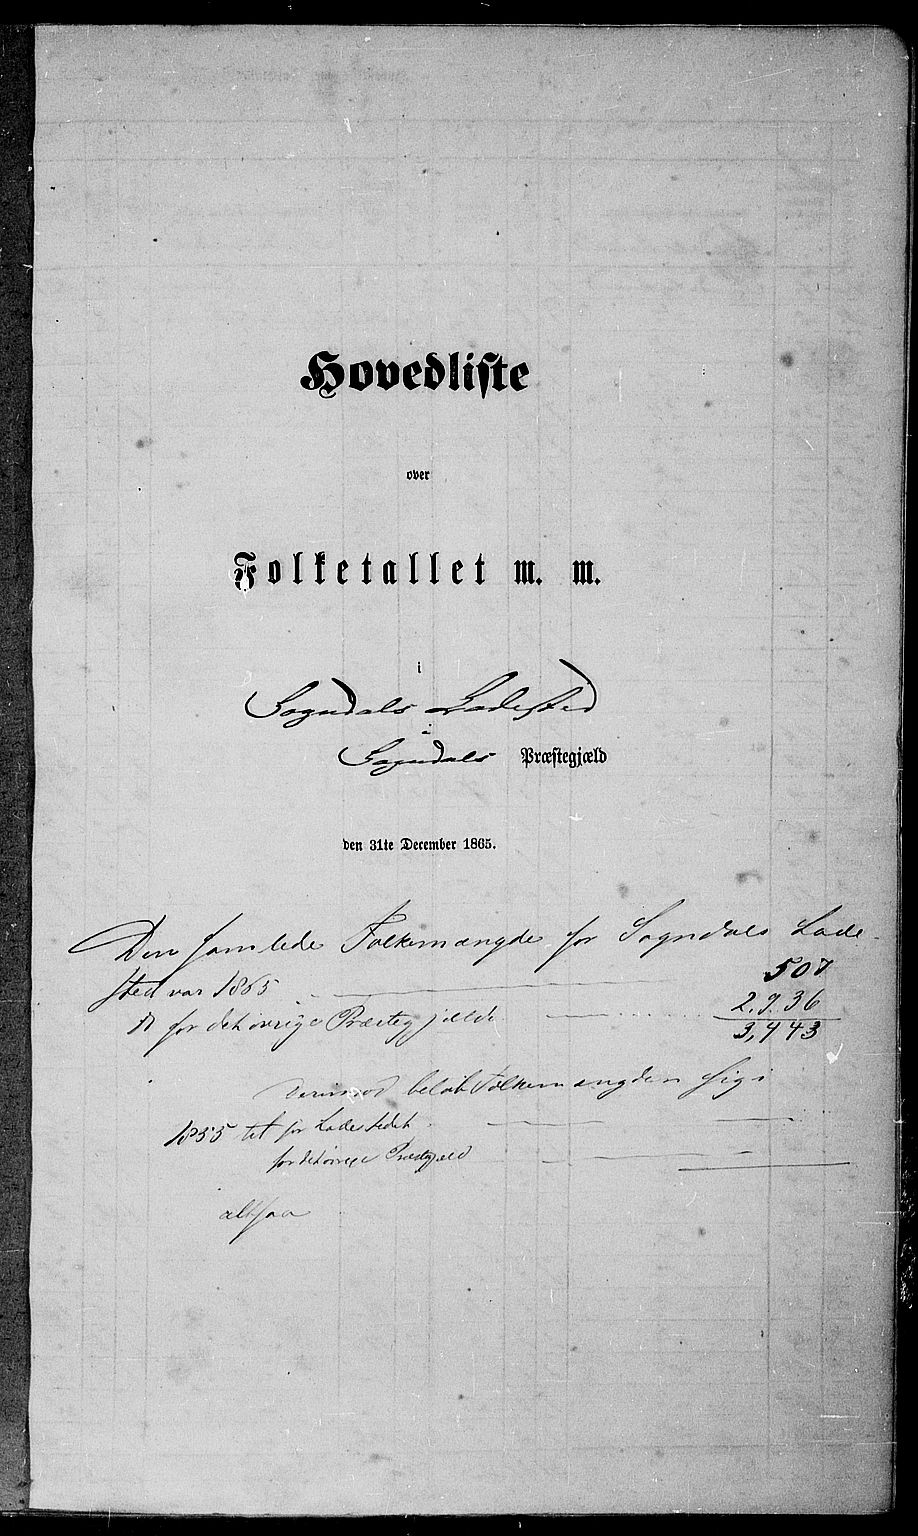 Hovedliste
over
Folketallet m. m.
i
Sogndals Ladested
i
Sogndals Præstegjæld
den 31te December 1865.
Den samlede Folkemængde for Sogndals Lade-
sted var 1865 507
for det øvrige Præstegjæld 2,936
3,443
Derimod beløb Folkemængden sig i
1855 til for Ladestedet
for det øvrige Præstegjæld
altsaa